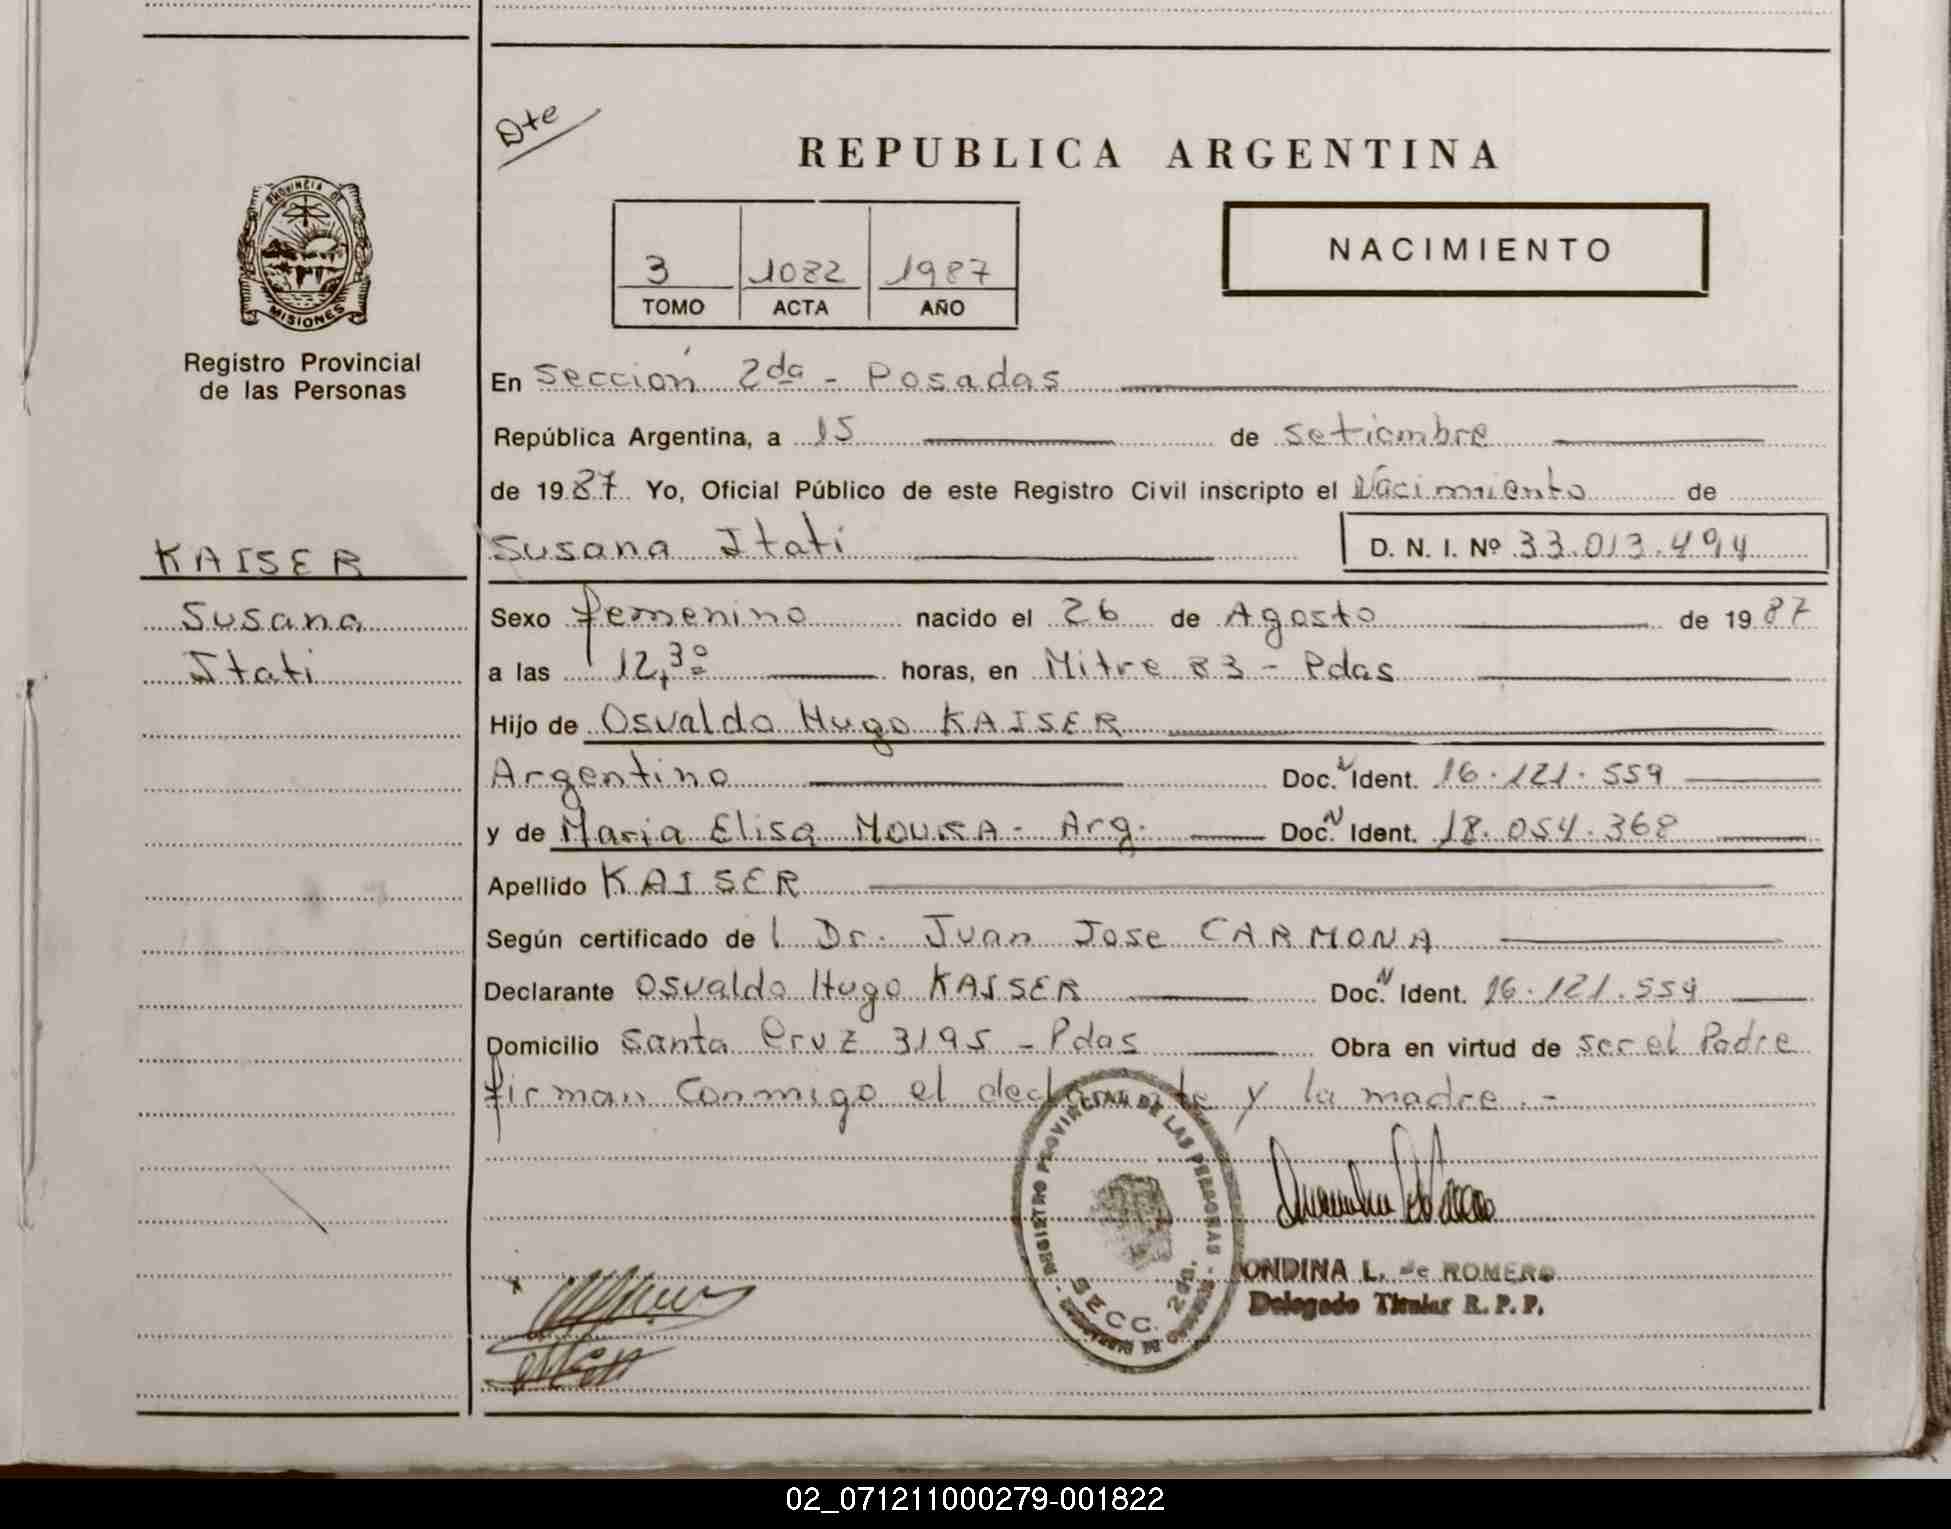 Dte
REPUBLICA ARGENTINA
PROVINCIA DE
MISIONES
Registro Provincial
de las Personas
3 1082 1987
TOMO ACTA AÑO
NACIMIENTO
En Sección 2da - Posadas
República Argentina, a 15 de Setiembre
de 1987 Yo, Oficial Público de este Registro Civil inscripto el Nacimiento de
Susana Itati D. N. I. Nº 33.013.494
KAISER
Susana
Itati
Sexo femenino nacido el 26 de Agosto de 1987
a las 12,30 horas, en Mitre 83 - Pdas
Hijo de Osvaldo Hugo KAISER
Argentino Doc. N Ident. 16.121.559
y de Maria Elisa MOURA - Arg. Doc. N Ident. 18.054.368
Apellido KAISER
Según certificado del Dr. Juan Jose CARMONA
Declarante Osvaldo Hugo KAISER Doc. N Ident. 16.121.559
Domicilio Santa Cruz 3195 - Pdas Obra en virtud de ser el Padre
firman conmigo el declarante y la madre.-
REGISTRO PROVINCIAL DE LAS PERSONAS
SECC. 2da.
ONDINA L. de ROMERO
Delegado Titular R. P. P.
02_071211000279-001822